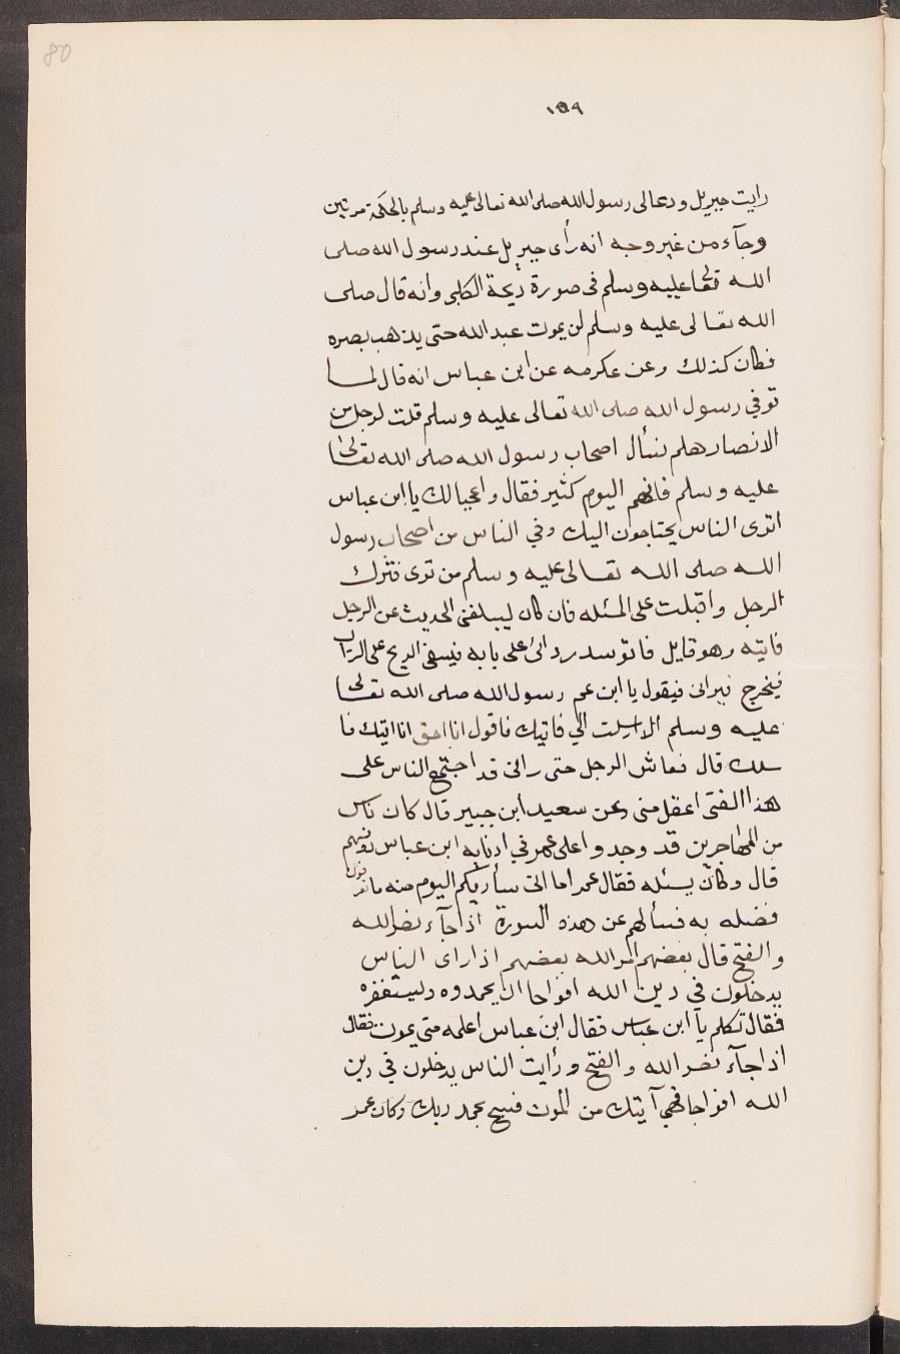 80
١٥٩
رايت جبريل ودعا لى رسول الله صلى الله تعالى عليه وسلم بالحكمة مرتين
وجآء من غير وجه انه رأى جبريل عند رسول الله صلى
الله تعالى عليه وسلم فى صورة دحية الكلبى وانه قال صلى
الله تعالى عليه وسلم لن يموت عبد الله حتى يذهب بصره
فكان كذلك وعن عكرمه عن ابن عباس انه قال لما
توفي رسول الله صلى الله تعالى عليه وسلم قلت لرجل من
الانصار هلم نسأل اصحاب رسول الله صلى الله تعالى
عليه وسلم فانهم اليوم كثير فقال واعجبا لك يا ابن عباس
اترى الناس يحتاجون اليك وفي الناس من اصحاب رسول
الله صلى الله تعالى عليه وسلم من ترى فترك
الرجل واقبلت على المسئله فان كان ليبلغنى الحديث عن الرجل
فاتيه وهو قايل فاتوسد ردائى على بابه فيسفى الريح على التراب
فيخرج فيرانى فيقول يا ابن عم رسول الله صلى الله تعالى
عليه وسلم الا ارسلت الي فاتيك فاقول انا احق انا اتيك فا
سلك قال فعاش الرجل حتى رانى قد اجتمع الناس على
هذا الفتى اعقل منى وعن سعيد ابن جبير قال كان ناس
من المهاجرين قد وجدوا على عمر في ادنايه ابن عباس دونهم
قال وكان يسئله فقال عمر اما انى ساريكم اليوم منه ما تعرفون
فضله به فسألهم عن هذه السورة اذا جآء نصر الله
والفتح قال بعضهم امر الله بعضهم اذا راى الناس
يدخلون في دين الله افواجا ان يحمدوه وليستغفره
فقال تكلم يا ابن عباس فقال ابن عباس اعلمه متى يموت فقال
اذا جآء نصر الله والفتح ورأيت الناس يدخلون في دين
الله افواجا فهي آيتك من الموت فسبح بحمد ربك وكان عمر